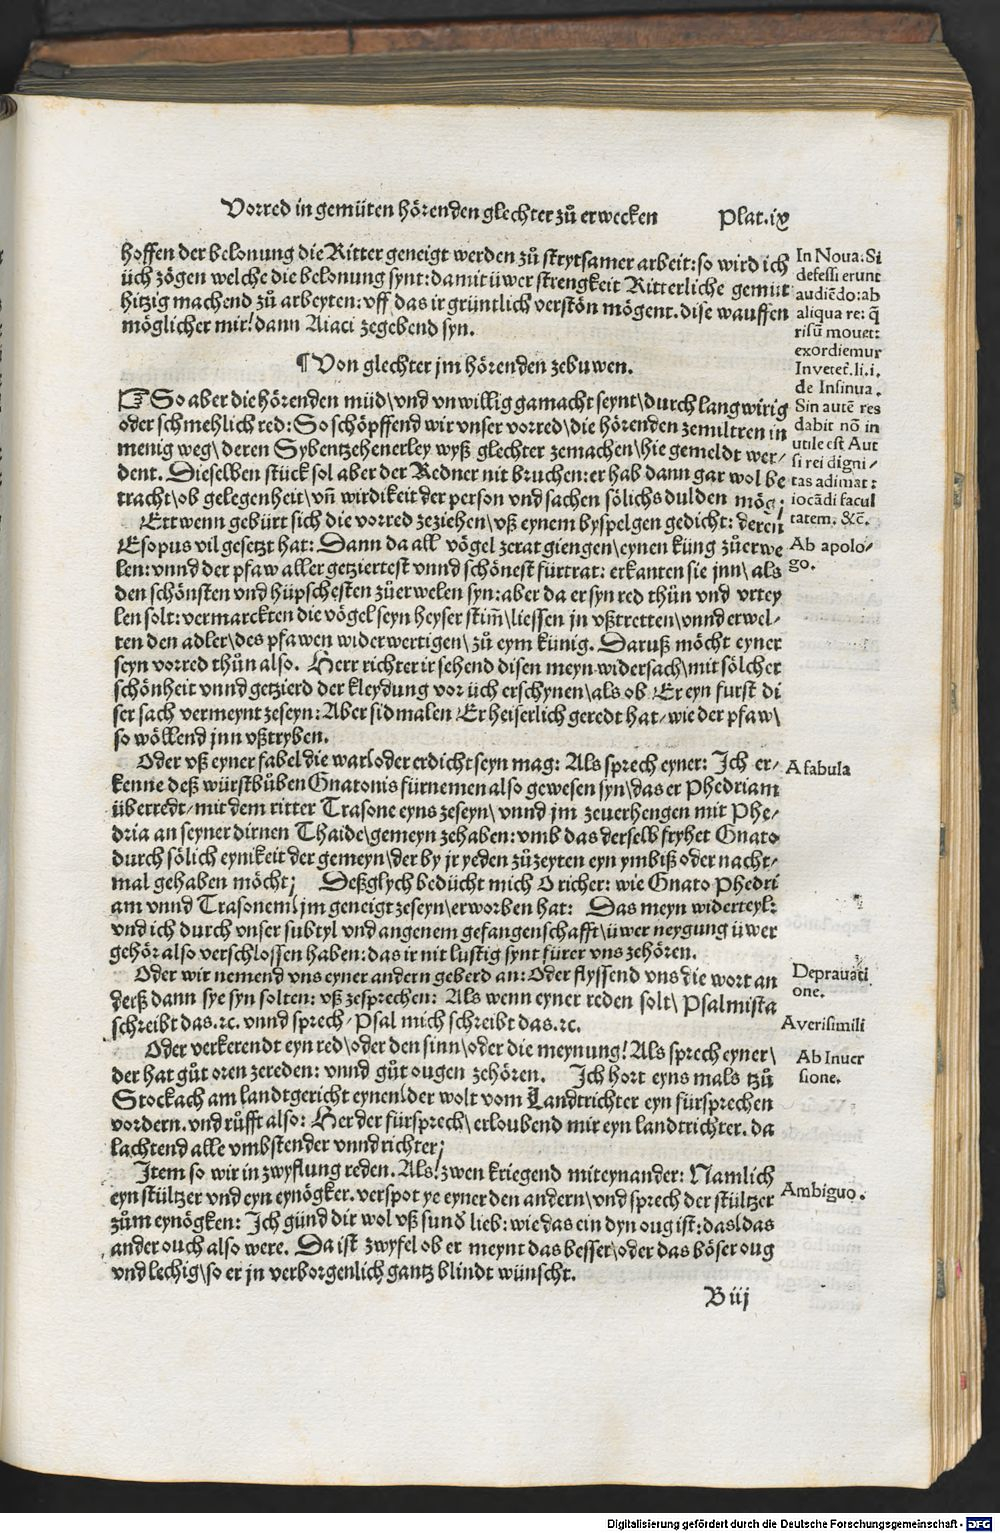 Vorred in gemüten hörenden glechter zů erwecken Plat.ix
hoffen der belonung die Ritter geneigt werden zů strytsamer arbeit: so wird ich
üch zögen welche die belonung synt: damit üwer strengkeit Ritterliche gemüt
hitzig machend zů arbeyten: vff das ir grüntlich verstön mögent. dise wauffen
möglicher mir/ dann Aiaci zegebend syn.
In Noua. Si
defessi erunt
audiēdo: ab
aliqua re: q̄
risū mouet:
exordiemur
Inveteč. li. i.
de Insinua.
Sin autē res
dabit nō in
utile est Aut
si rei digni⸗
tas adimat:
iocādi facul
tatem. &c̄.
¶ Von glechter jm hörenden zebuwen.
☞ So aber die hörenden müd\ vnd vnwillig gamacht seynt\ durch langwirig
oder schmehlich red: So schöpffend wir vnser vorred\ die hörenden zemiltren in
menig weg\ deren Sybentzehenerley wyß glechter zemachen\ hie gemeldt wer⸗
dent. Dieselben stück sol aber der Redner nit bruchen: er hab dann gar wol be
tracht\ ob gelegenheit\ vn̄ wirdikeit der person vnd sachen sölichs dulden mög;
Ettwenn gebürt sich die vorred zeziehen\ vß eynem byspelgen gedicht: deren
Esopus vil gesetzt hat: Dann da all vögel zerat giengen\ eynen küng zůerwe
len: vnnd der pfaw aller getziertest vnnd schönest fürtrat: erkanten sie jnn\ als
den schönsten vnd hüpschesten zůerwelen syn: aber da er syn red thůn vnd vrtey
len solt: vermarckten die vögel seyn heyser stim̄\ liessen jn vßtretten\ vnnd erwel⸗
ten den adler\ des pfawen widerwertigen\ zů eym künig. Daruß möcht eyner
seyn vorred thůn also. Herr richter ir sehend disen meyn widersach\ mit sölcher
schönheit vnnd getzierd der kleydung vor üch erschynen\ als ob Er eyn furst di
ser sach vermeynt zeseyn: Aber sidmalen Er heiserlich geredt hat⸗ wie der pfaw\
so wöllend jnn vßtryben.
Ab apolo⸗
go.
Oder vß eyner fabel die war/ oder erdicht seyn mag: Als sprech eyner: Ich er⸗
kenne deß würstbůben Gnatonis fürnemen also gewesen syn\ das er Phedriam
überredt⸗ mit dem ritter Trasone eyns zeseyn\ vnnd jm zeuerhengen mit Phe⸗
dria an seyner dirnen Thaide\ gemeyn zehaben: vmb das derselb fryhet Gnato
durch sölich eynikeit der gemeyn\ der by jr yeden zůzeyten eyn ymbiß oder nacht⸗
mal gehaben möcht; Deßglych bedücht mich O richer: wie Gnato Phedri
am vnnd Trasonem/ jm geneigt zeseyn\ erworben hat: Das meyn widerteyl:
vnd ich durch vnser subtyl vnd angenem gefangenschafft\ üwer neygung üwer
gehör also verschlossen haben: das ir nit lustig synt fürer vns zehören.
A fabula
Oder wir nemend vns eyner andern geberd an: Oder flyssend vns die wort an
derß dann sye syn solten: vß zesprechen: Als wenn eyner reden solt\ Psalmista
schreibt das. ꝛc. vnnd sprech⸗ Psal mich schreibt das. ꝛc.
Deprauati
one.
Oder verkerendt eyn red\ oder den sinn\ oder die meynung! Als sprech eyner\
der hat gůt oren zereden: vnnd gůt ougen zehören. Ich hort eyns mals tzů
Stockach am landtgericht eynen/ der wolt vom Landtrichter eyn fürsprechen
vordern. vnd růfft also: Her der fürsprech\ erloubend mir eyn landtrichter. da
lachtend alle vmbstender vnnd richter;
A verisimili
Ab Inuer
sione.
Item so wir in zwyflung reden. Als/ zwen kriegend miteynander: Namlich
eyn stültzer vnd eyn eynögker. verspot ye eyner den andern\ vnd sprech der stültzer
zům eynögken: Ich günd dir wol vß sund̄ lieb: wie das ein dyn oug ist: das/ das
ander ouch also were. Da ist zwyfel ob er meynt das besser\ oder das böser oug
vnd lechig\ so er jn verborgenlich gantz blindt wünscht.
Ambiguo.
B iij
Digitalisierung gefördert durch die Deutsche Forschungsgemeinschaft - DFG